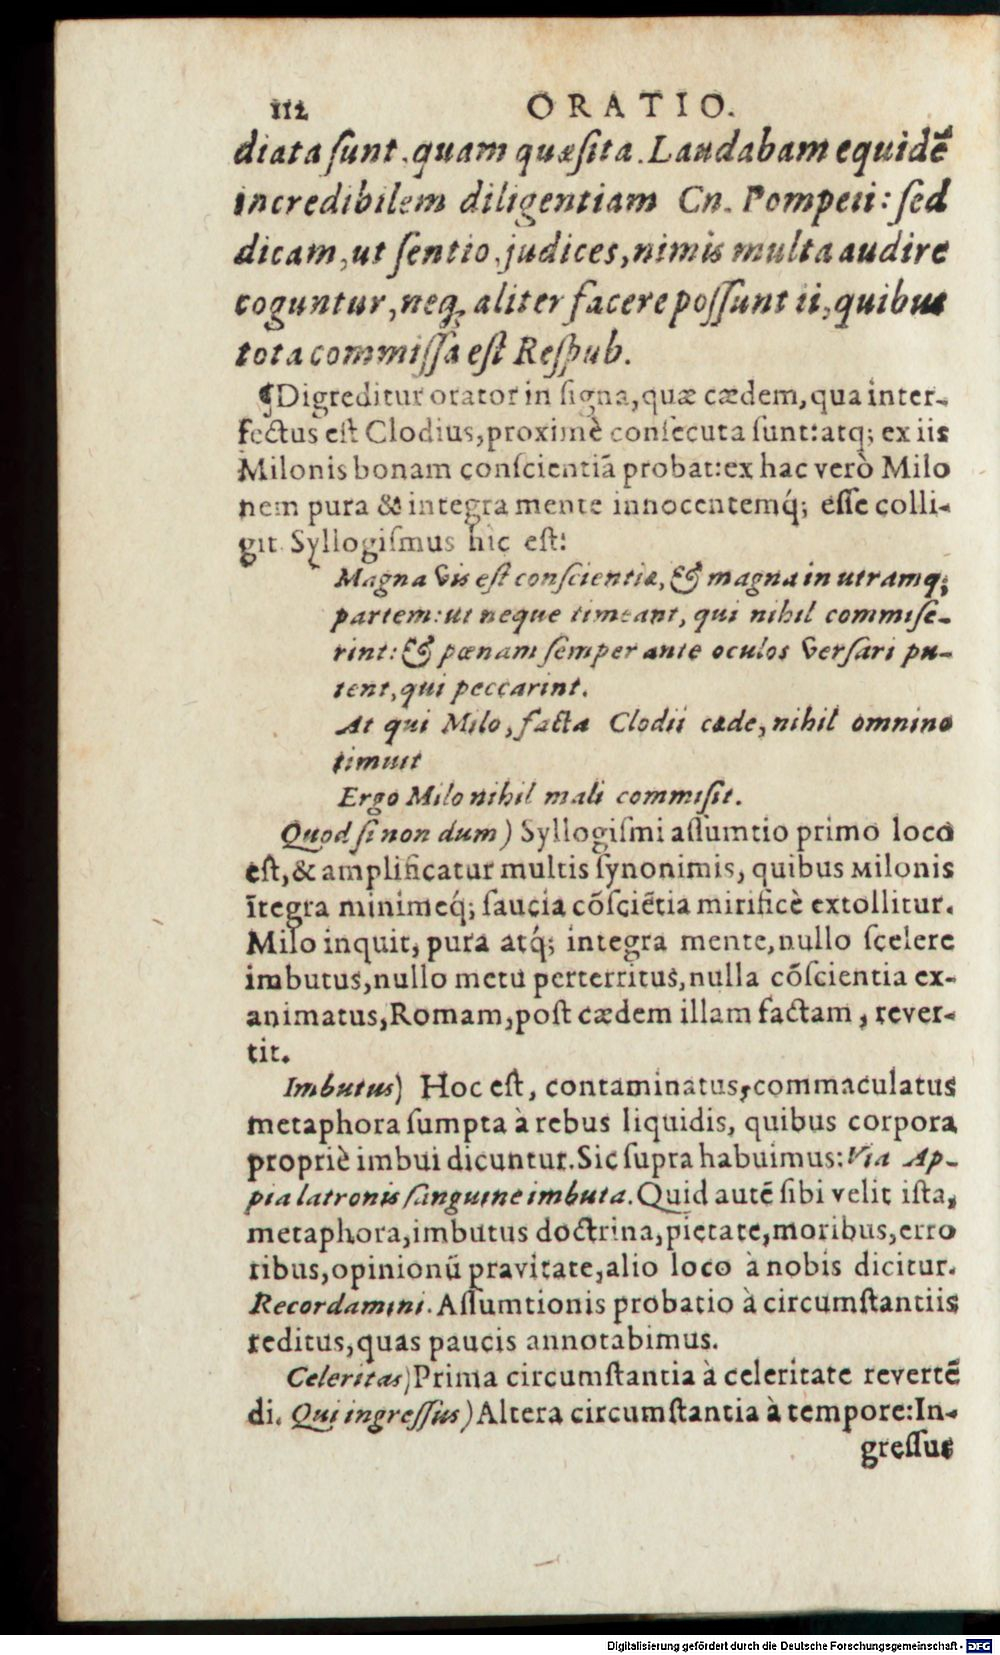 112 ORATIO.
diata ſunt, quam quæſita. Laudabam equidē
incredibilem diligentiam Cn. Pompeii: ſed
dicam, ut ſentio, judices, nimis multa audire
coguntur, neq; aliter facere poſſunt ii, quibus
tota commiſſa eſt Reſpub.
¶Digreditur orator in ſigna, quæ cædem, qua inter-
fectus eſt Clodius, proximè conſecuta ſunt: atq; ex iis
Milonis bonam conſcientiā probat: ex hac verò Milo
nem pura & integra mente innocentemq́; eſſe colli-
git. Syllogiſmus hic eſt:
Magna vis eſt conſcientiæ, & magna in utramq;
partem: ut neque timeant, qui nihil commiſe-
rint: & pœnam ſemper ante oculos verſari pu-
tent, qui peccarint.
At qui Milo, facta Clodii cæde, nihil omnino
timuit
Ergo Milo nihil mali commiſit.
Quod ſi non dum) Syllogiſmi aſſumtio primo loco
eſt, & amplificatur multis ſynonimis, quibus Milonis
īteg­ra minimeq́; ſaucia cōſciētia mirificè extollitur.
Milo inquit, pura atq́; integra mente, nullo ſcelere
imbutus, nullo metu perterritus, nulla cōſcientia ex-
animatus, Romam, poſt cædem illam factam, rever-
tit.
Imbutus) Hoc eſt, contaminatus, commaculatus
metaphora ſumpta à rebus liquidis, quibus corpora
propriè imbui dicuntur. Sic ſupra habuimus: Via Ap-
pia latronis ſanguine imbuta. Quid autē ſibi velit iſta,
metaphora, imbutus doctrina, pietate, moribus, erro
ribus, opinionū pravitate, alio loco à nobis dicitur.
Recordamini. Aſſumtionis probatio à circumſtantiis
reditus, quas paucis annotabimus.
Celeritas) Prima circumſtantia à celeritate revertē
di. Qui ingreſſus) Altera circumſtantia à tempore: In-
greſſus
Digitalisierung gefördert durch die Deutsche Forschungsgemeinschaft - DFG